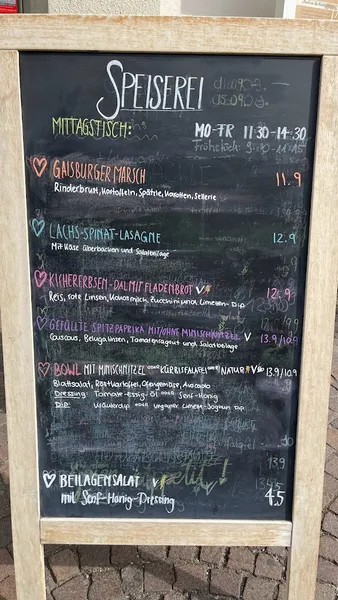 SPEISEREI
MITTAGSTISCH: MO-FR 11:30-14:30
GAISBURGER MARSCH 11.9
Rinderbrust, Kartoffeln, Spätzle, Karotten, Sellerie
LACHS-SPINAT-LASAGNE 12.9
Mit Käse überbacken und Salatbeilage
KICHERERBSEN-DAL MIT FLADENBROT V 12.9
Reis, rote Linsen, Kokosmilch, Zucchini und Limetten-Dip
GEFÜLLTE SPITZPAPRIKA MIT/OHNE MINISCHNITZEL V 13.9/10.9
Couscous, Belugalinsen, Tomatenragout und Salatbeilage
BOWL MIT MINISCHNITZEL ODER KÜRBISFALAFEL ODER NATUR V 13.9/10.9
Blattsalat, Rote Kartoffel, Ofengemüse, Avocado
Dressing: Tomate-Essig-Öl ODER Senf-Honig
Dip: Kräuterdip ODER veganer Limette-Joghurt Dip
BEILAGENSALAT V
mit Senf-Honig-Dressing 4.5